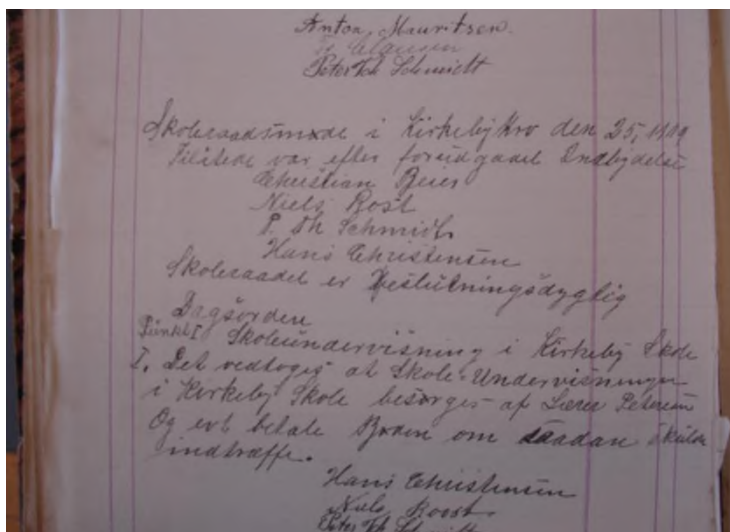 Anton Mauritsen.
Clausen
Peter Th Schmidt
Skoleraadsmøde i Kirkeby Kro den 25, 1919
Tilstede var efter forudgaaet Indbydelse
Christian Beier
Niels Bost
P. Th Schmidt
Hans Christensen
Skoleraadet er Beslutningsdygtig
Dagsorden
Punkt I Skoleundervisning i Kirkeby Skole
I. Det vedtoges at Skole-Undervisningen
i Kirkeby Skole besørges af Lærer Petersen
Og evt betale Bøden om saadan skulde
indtræffe.
Hans Christensen
Niels Boost
Peter Th Schmidt